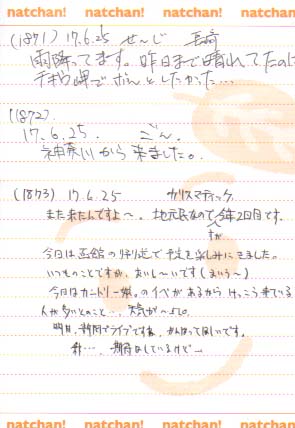 natchan! natchan! natchan! natchan!
(1871) 17.6.25 せーじ 長崎
雨降ってます。昨日まで晴れてたのに
チキウ岬でボーっとしたかった…
(1872)
17.6.25. ごん。
神奈川から来ました。
(1873) 17.6.25 カリスマティック
また来たんですよ〜。地元民なので今年2回目です。
すが
今日は函館の帰り途で予定を楽しみにきました。
いつものことですが、おいし〜いです(まいう〜)
今日はカントリー の イベがあるからけっこう来ている
人が多いとのこと…、天気が〜
明日、静岡でライブですね、がんばってほしいです。
…、期待はしているけど
natchan! natchan! natchan! natchan!